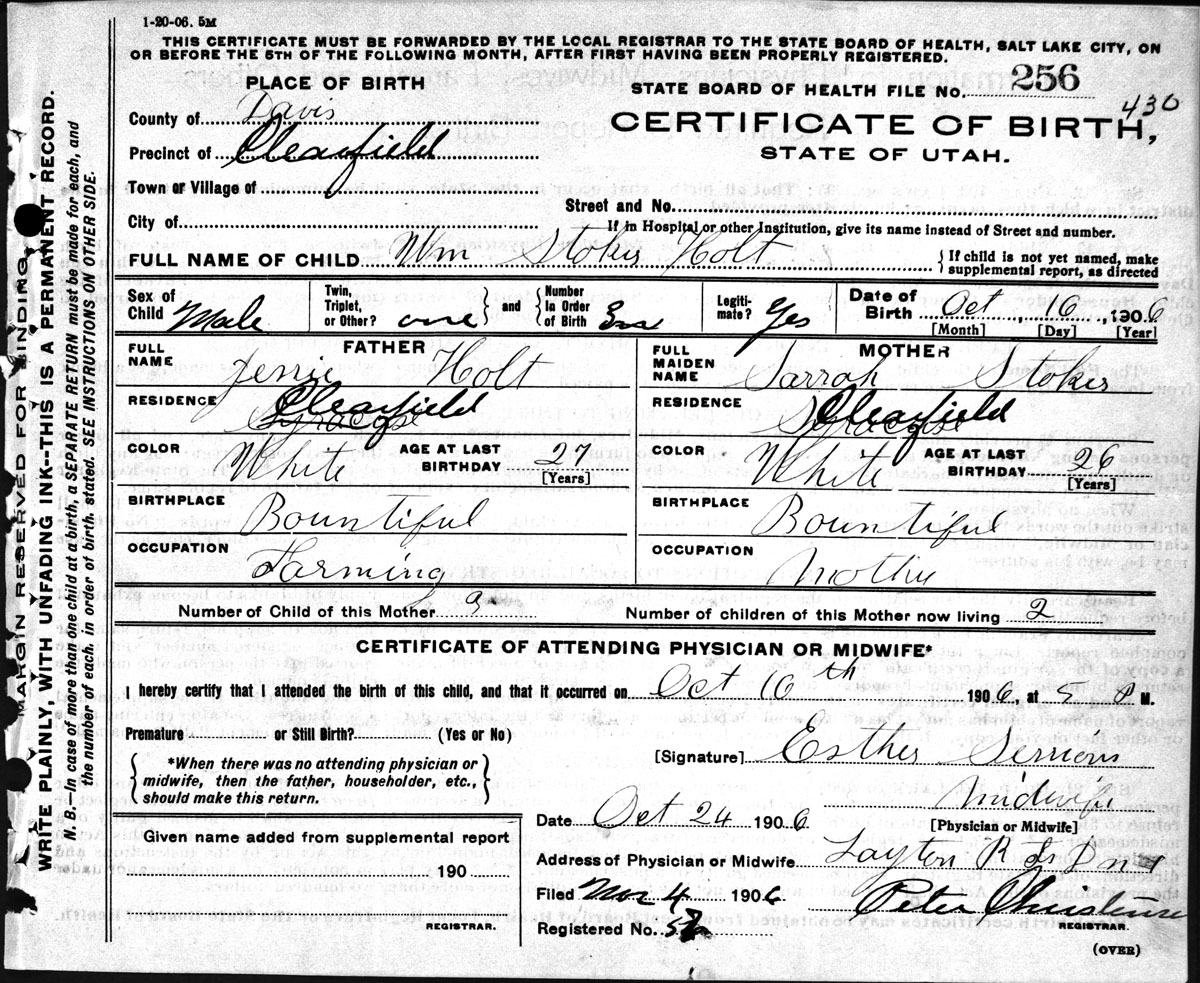 1-20-06. 5M
THIS CERTIFICATE MUST BE FORWARDED BY THE LOCAL REGISTRAR TO THE STATE BOARD OF HEALTH, SALT LAKE CITY, ON
OR BEFORE THE 5TH OF THE FOLLOWING MONTH, AFTER FIRST HAVING BEEN PROPERLY REGISTERED.
PLACE OF BIRTH
STATE BOARD OF HEALTH FILE No. 256
430
County of Davis
CERTIFICATE OF BIRTH,
Precinct of Clearfield
STATE OF UTAH.
Town or Village of
Street and No.
City of
If in Hospital or other Institution, give its name instead of Street and number.
FULL NAME OF CHILD Wm Stokes Holt
{ If child is not yet named, make
supplemental report, as directed
Sex of Child Male
Twin, Triplet, or Other? one } and { Number In Order of Birth
Legiti- mate? Yes
Date of Birth Oct 16, 1906
[Month] [Day] [Year]
FATHER
FULL NAME Jessie Holt
RESIDENCE Clearfield
Syracuse
COLOR White AGE AT LAST BIRTHDAY 27
[Years]
BIRTHPLACE Bountiful
OCCUPATION Farming
MOTHER
FULL MAIDEN NAME Sarrah Stokes
RESIDENCE Clearfield
Syracuse
COLOR White AGE AT LAST BIRTHDAY 26
[Years]
BIRTHPLACE Bountiful
OCCUPATION Mother
Number of Child of this Mother 3
Number of children of this Mother now living 2
CERTIFICATE OF ATTENDING PHYSICIAN OR MIDWIFE*
I hereby certify that I attended the birth of this child, and that it occurred on Oct 16th 1906, at 5 P M.
Premature or Still Birth? (Yes or No)
{ *When there was no attending physician or
midwife, then the father, householder, etc.,
should make this return. }
[Signature] Esther
Midwife
[Physician or Midwife]
Date Oct 24 1906
Given name added from supplemental report
190
REGISTRAR.
Address of Physician or Midwife Layton R
Filed Nov 4 1906
Peter Christensen
REGISTRAR.
Registered No.
(OVER)
MARGIN RESERVED FOR BINDING
WRITE PLAINLY, WITH UNFADING INK--THIS IS A PERMANENT RECORD.
N. B.—In case of more than one child at a birth, a SEPARATE RETURN must be made for each, and
the number of each, in order of birth, stated. SEE INSTRUCTIONS ON OTHER SIDE.